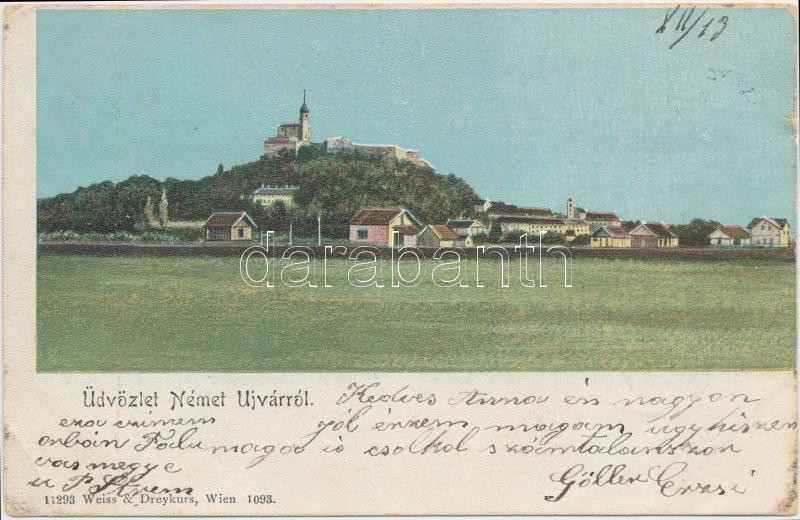 XII/13
darabanth
Üdvözlet Német Ujvárról.
Kedves Anna én nagyon
jól érzem magam ugyhiszem
maga is csolkol számtalanszor
Göller Erzsi
eza czimem
orbán Falu
vas megye
u P.
11293 Weiss & Dreykurs, Wien 1093.